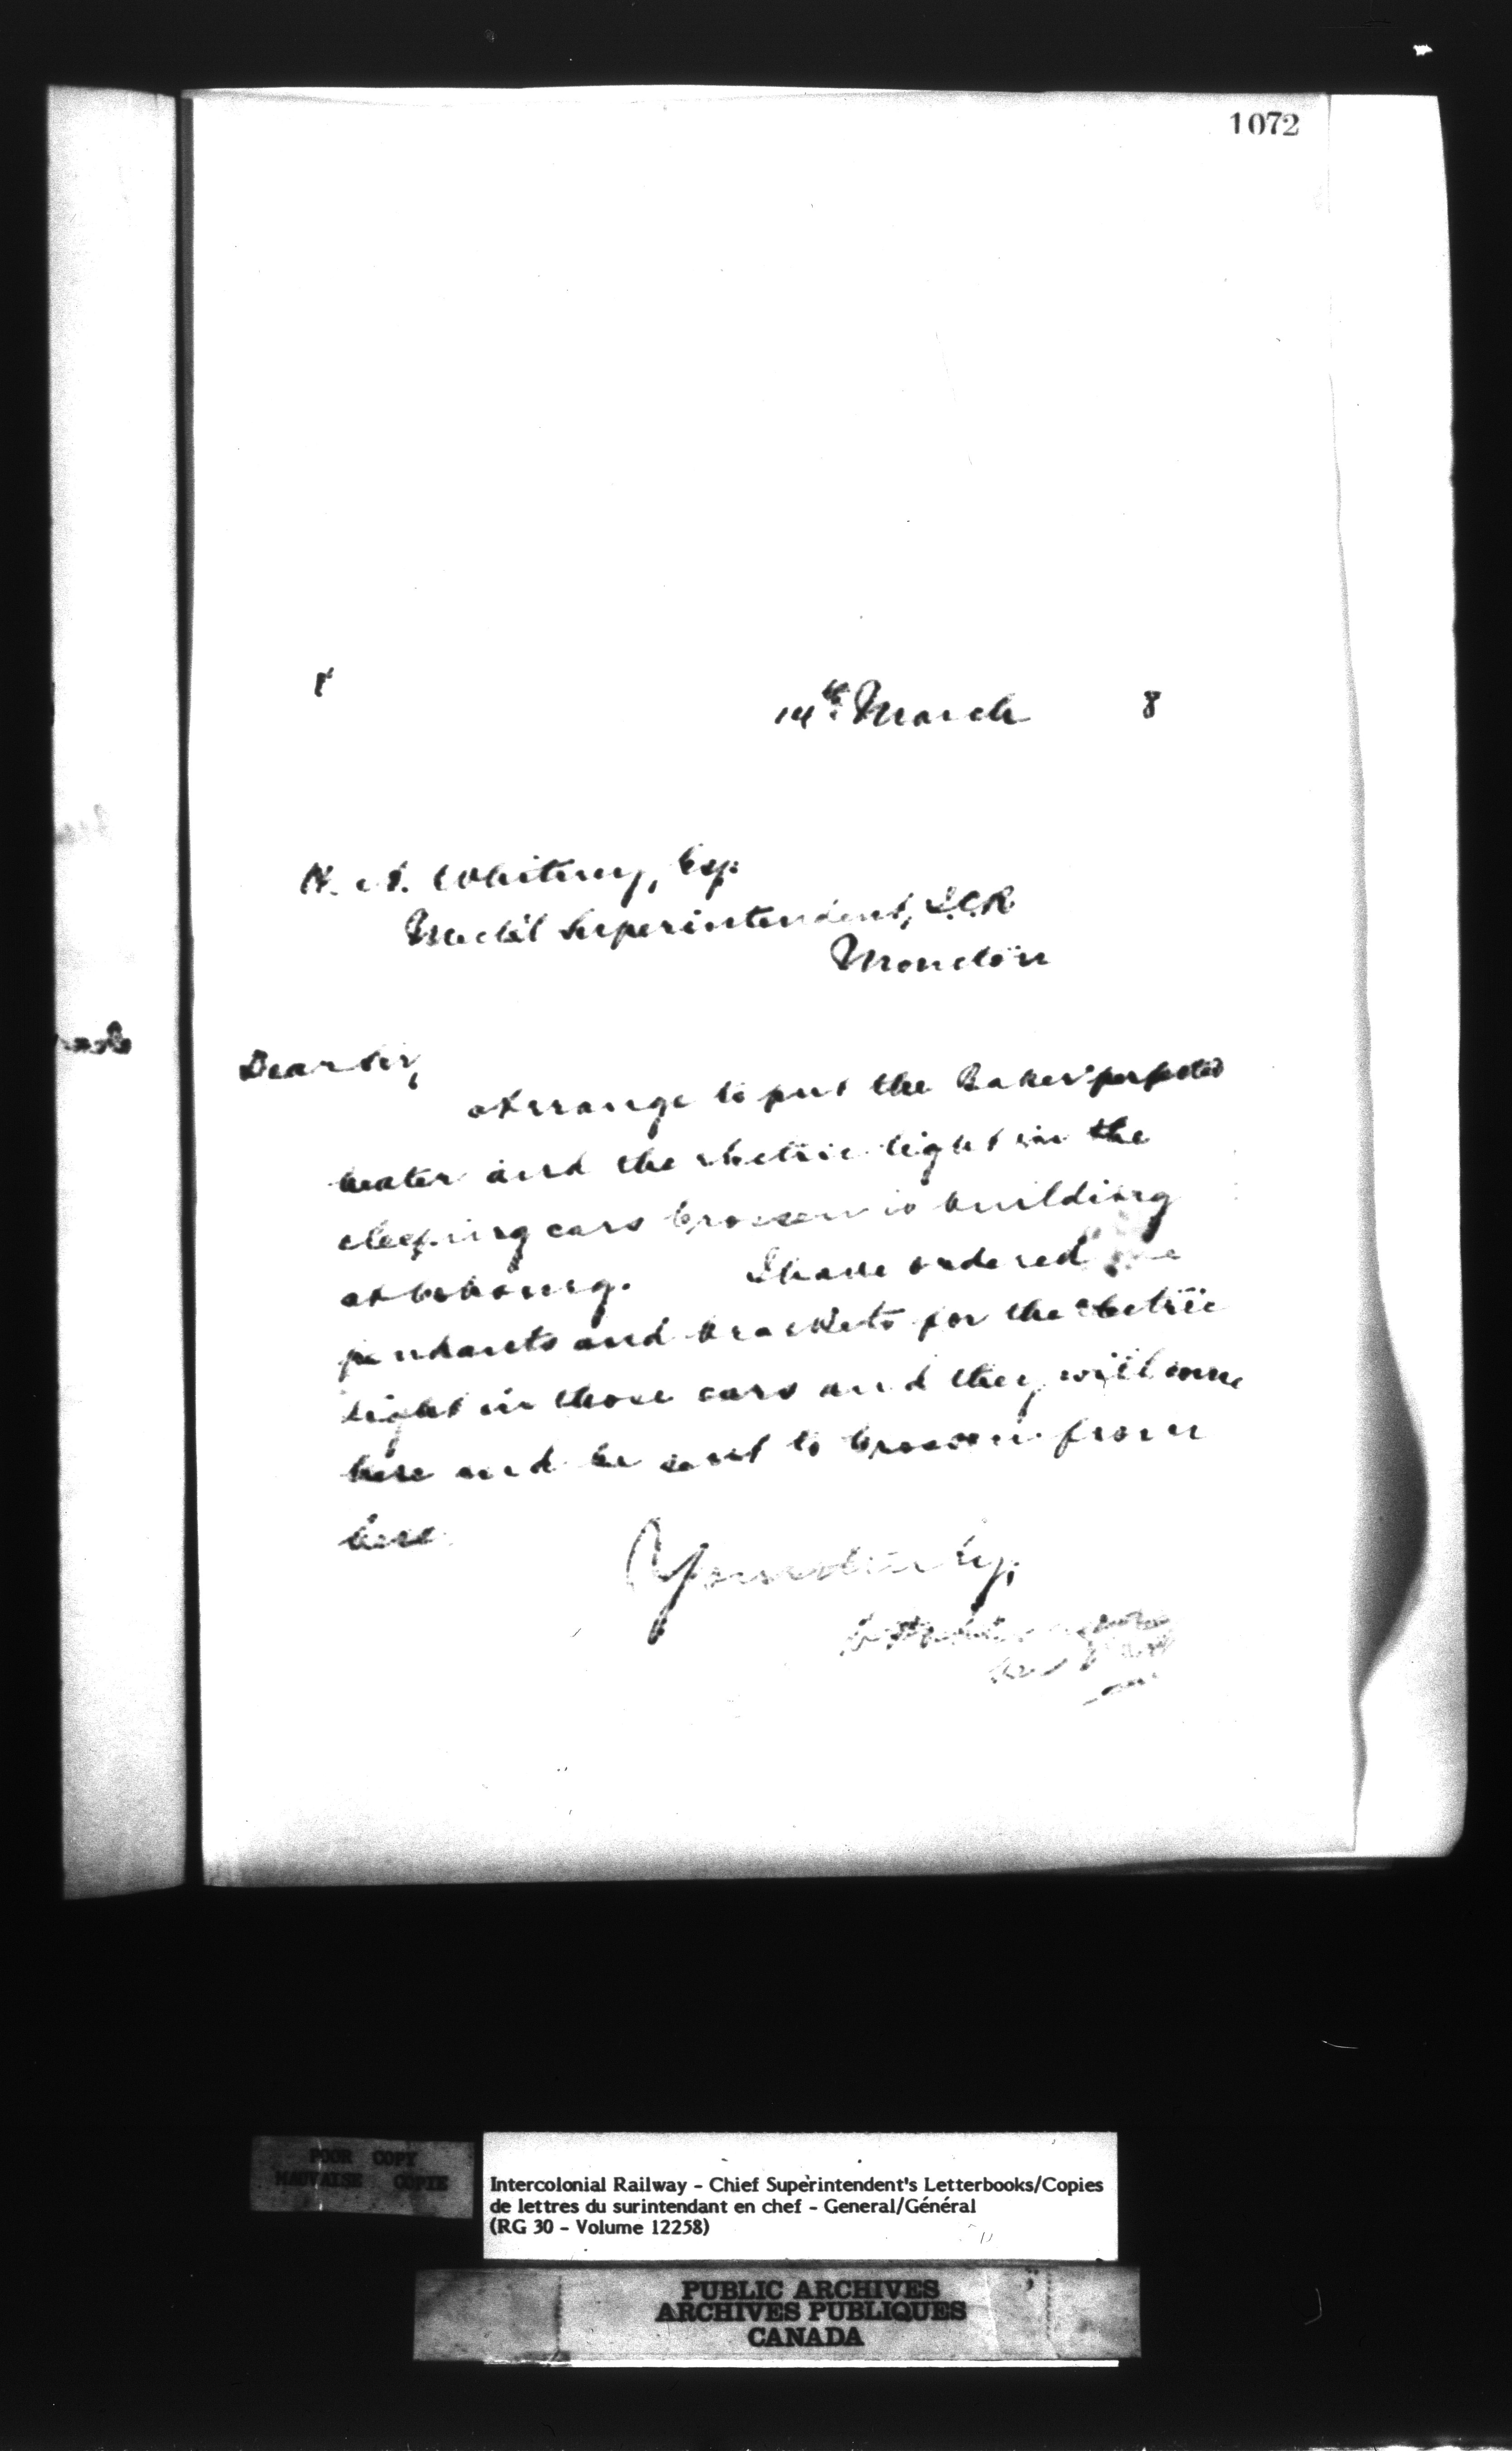 1072
14th March 8
H. A. Whitney, Esq.
Mech'l Superintendent, I.C.R.
Moncton
Dear Sir,
Arrange to put the Baker perfected
heater and the electric light in the
sleeping cars Crossen is building
at Cobourg. I have ordered the
pendants and brackets for the electric
light in those cars and they will come
here and be sent to Crossen from
here.
Yours truly,
POOR COPY
MAUVAISE COPIE
Intercolonial Railway - Chief Superintendent's Letterbooks/Copies
de lettres du surintendant en chef - General/Général
(RG 30 - Volume 12258)
PUBLIC ARCHIVES
ARCHIVES PUBLIQUES
CANADA